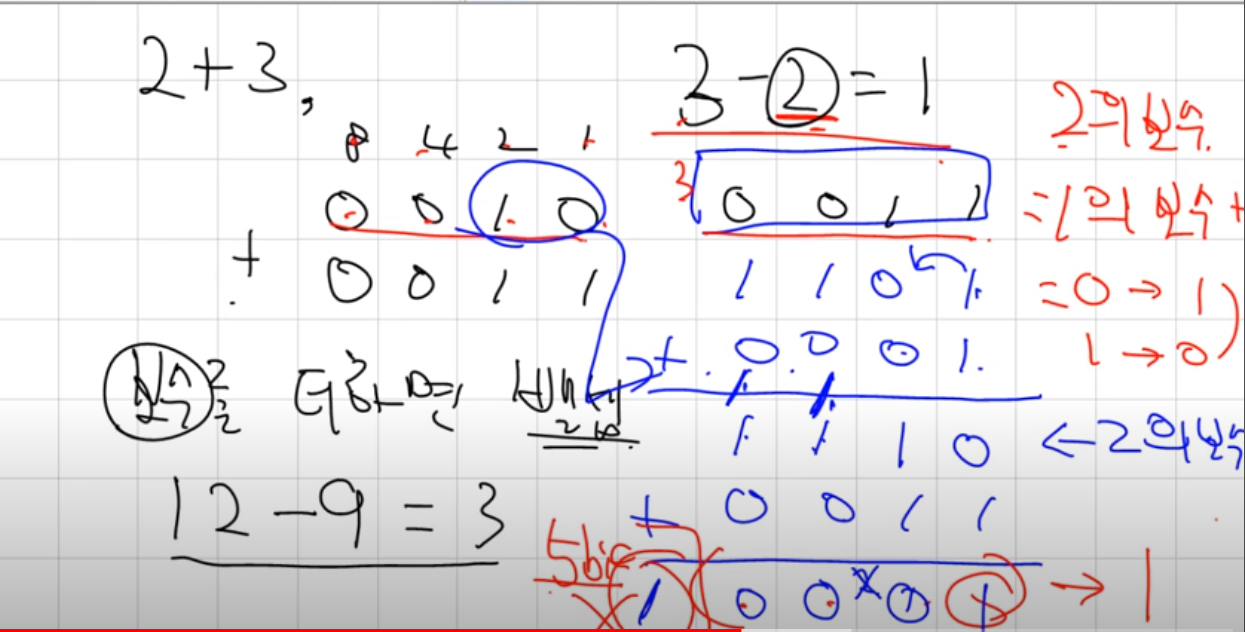 2+3,
8 4 2 1
0 0 1 0
+
0 0 1 1
12-9=3
3-2=1
3 0 0 1 1
1 1 0 1
+ 0 0 0 1
1 1 1 0 ←2의 보수
+ 0 0 1 1
5bit
1 0 0 0 1 → 1
2의 보수
=1의 보수+
=0→1)
1→0